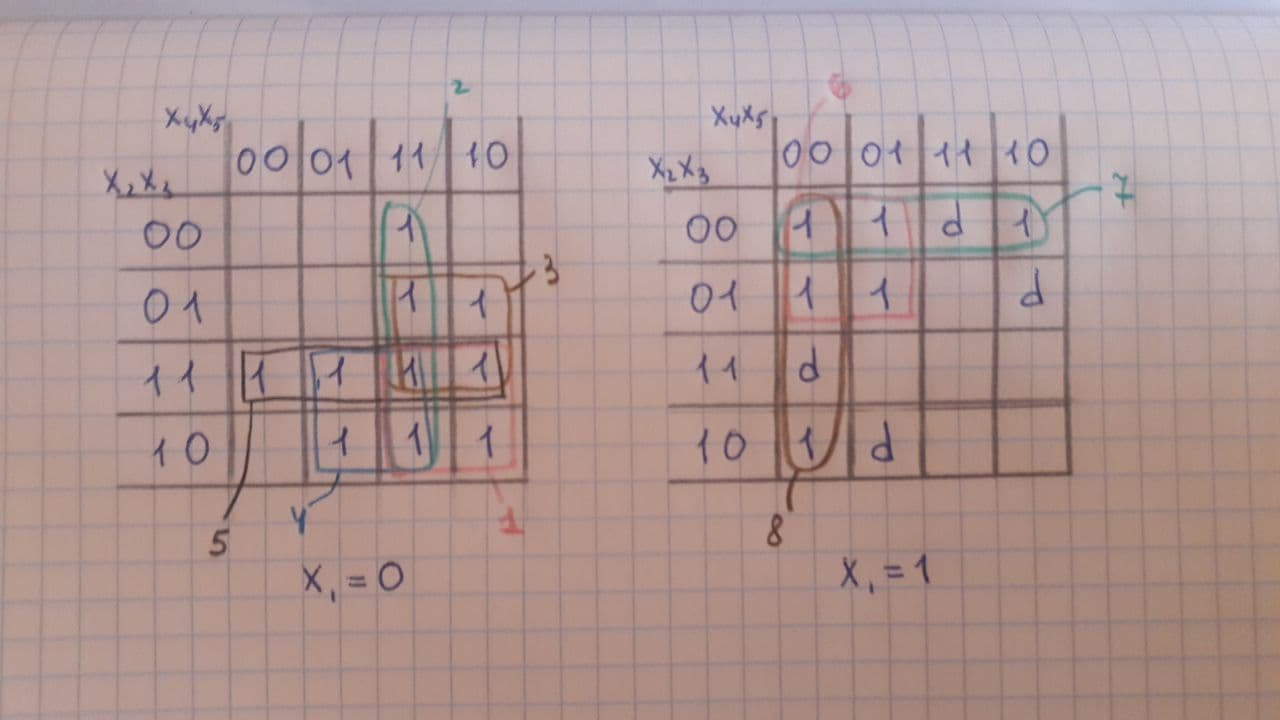 2
6
x₄x₅
x₂x₃ 00 01 11 10
00 1
01 1 1
11 1 1 1 1
10 1 1 1
3
5
4
1
x₁ = 0
x₄x₅
x₂x₃ 00 01 11 10
00 1 1 d 1
01 1 1 d
11 d
10 1 d
7
8
x₁ = 1